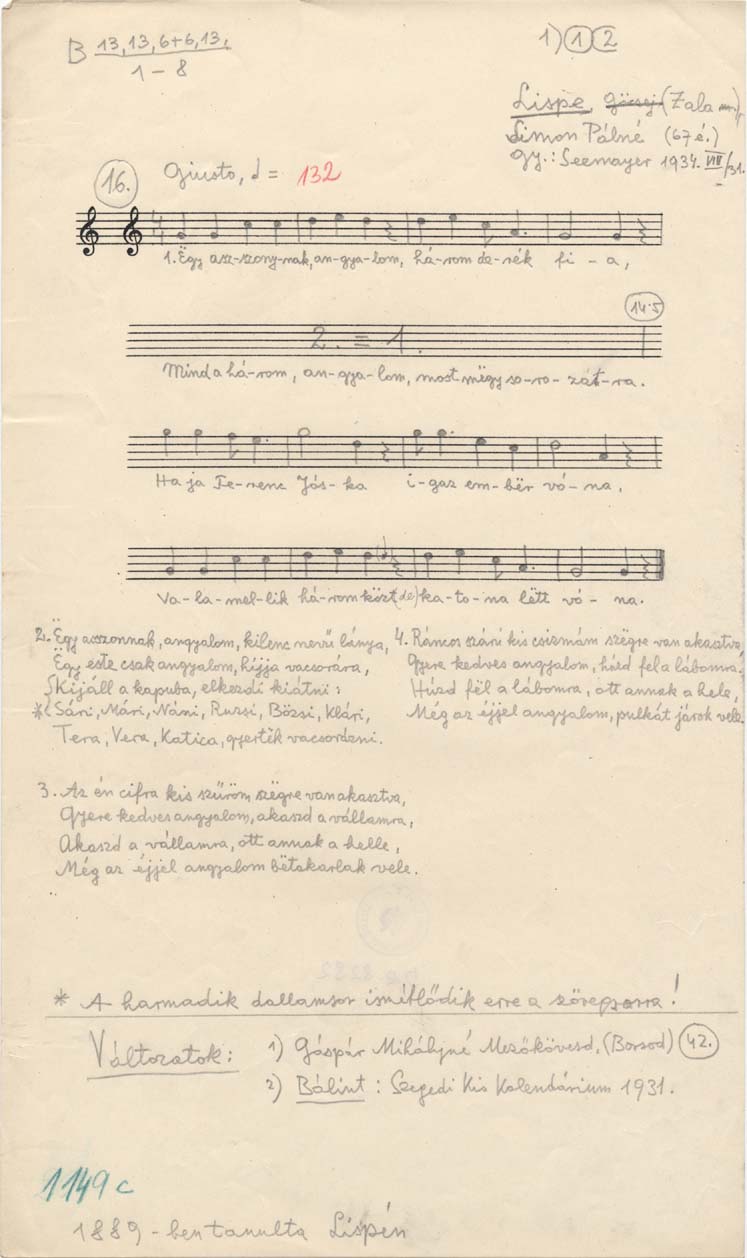 B 13,13,6+6,13,
1-8
1) 1 2
Lispe, Göcsej (Zala m.),
Simon Pálné (67é.)
gy.: Seemayer 1934. VIII/31.
16. Giusto, = 132
1. Ëgy asz-szony-nak, an-gya-lom, há-rom de-rék fi-a,
14.5
2. = 1.
Mind a há-rom, an-gya-lom, most mëgy so-ro-zát-ra.
Ha ja Fe-renc Jós-ka i-gaz em-bër vó-na,
Va-la-mel-lik há-rom közt (de) ka-to-na lëtt vó-na.
2. Ëgy asszonnak, angyalom, kilenc nevű lánya,
Ëgy este csak angyalom, híjja vacsorára,
Kijáll a kapuba, elkezdi kiátni:
* Sári, Mári, Náni, Ruzsi, Bözsi, Klári,
Tera, Vera, Katica, gyertëk vacsorázni.
4. Ráncos szárú kis csizmám szëgre van akasztva,
Gyere kedves angyalom, húzd fel a lábomra.
Húzd fël a lábomra, ott annak a hele,
Még az éjjel angyalom, pulkát járok vele.
3. Az én cifra kis szűröm szëgre van akasztva,
Gyere kedves angyalom, akaszd a vállamra,
Akaszd a vállamra, ott annak a helle,
Még az éjjel angyalom bëtakarlak vele.
* A harmadik dallamsor ismétlődik erre a szövegsorra!
Változatok: 1) Gáspár Mihályné Mezőkövesd, (Borsod) 42.
2) Bálint: Szegedi Kis Kalendárium 1931.
1149c
1889-ben tanulta Lispén